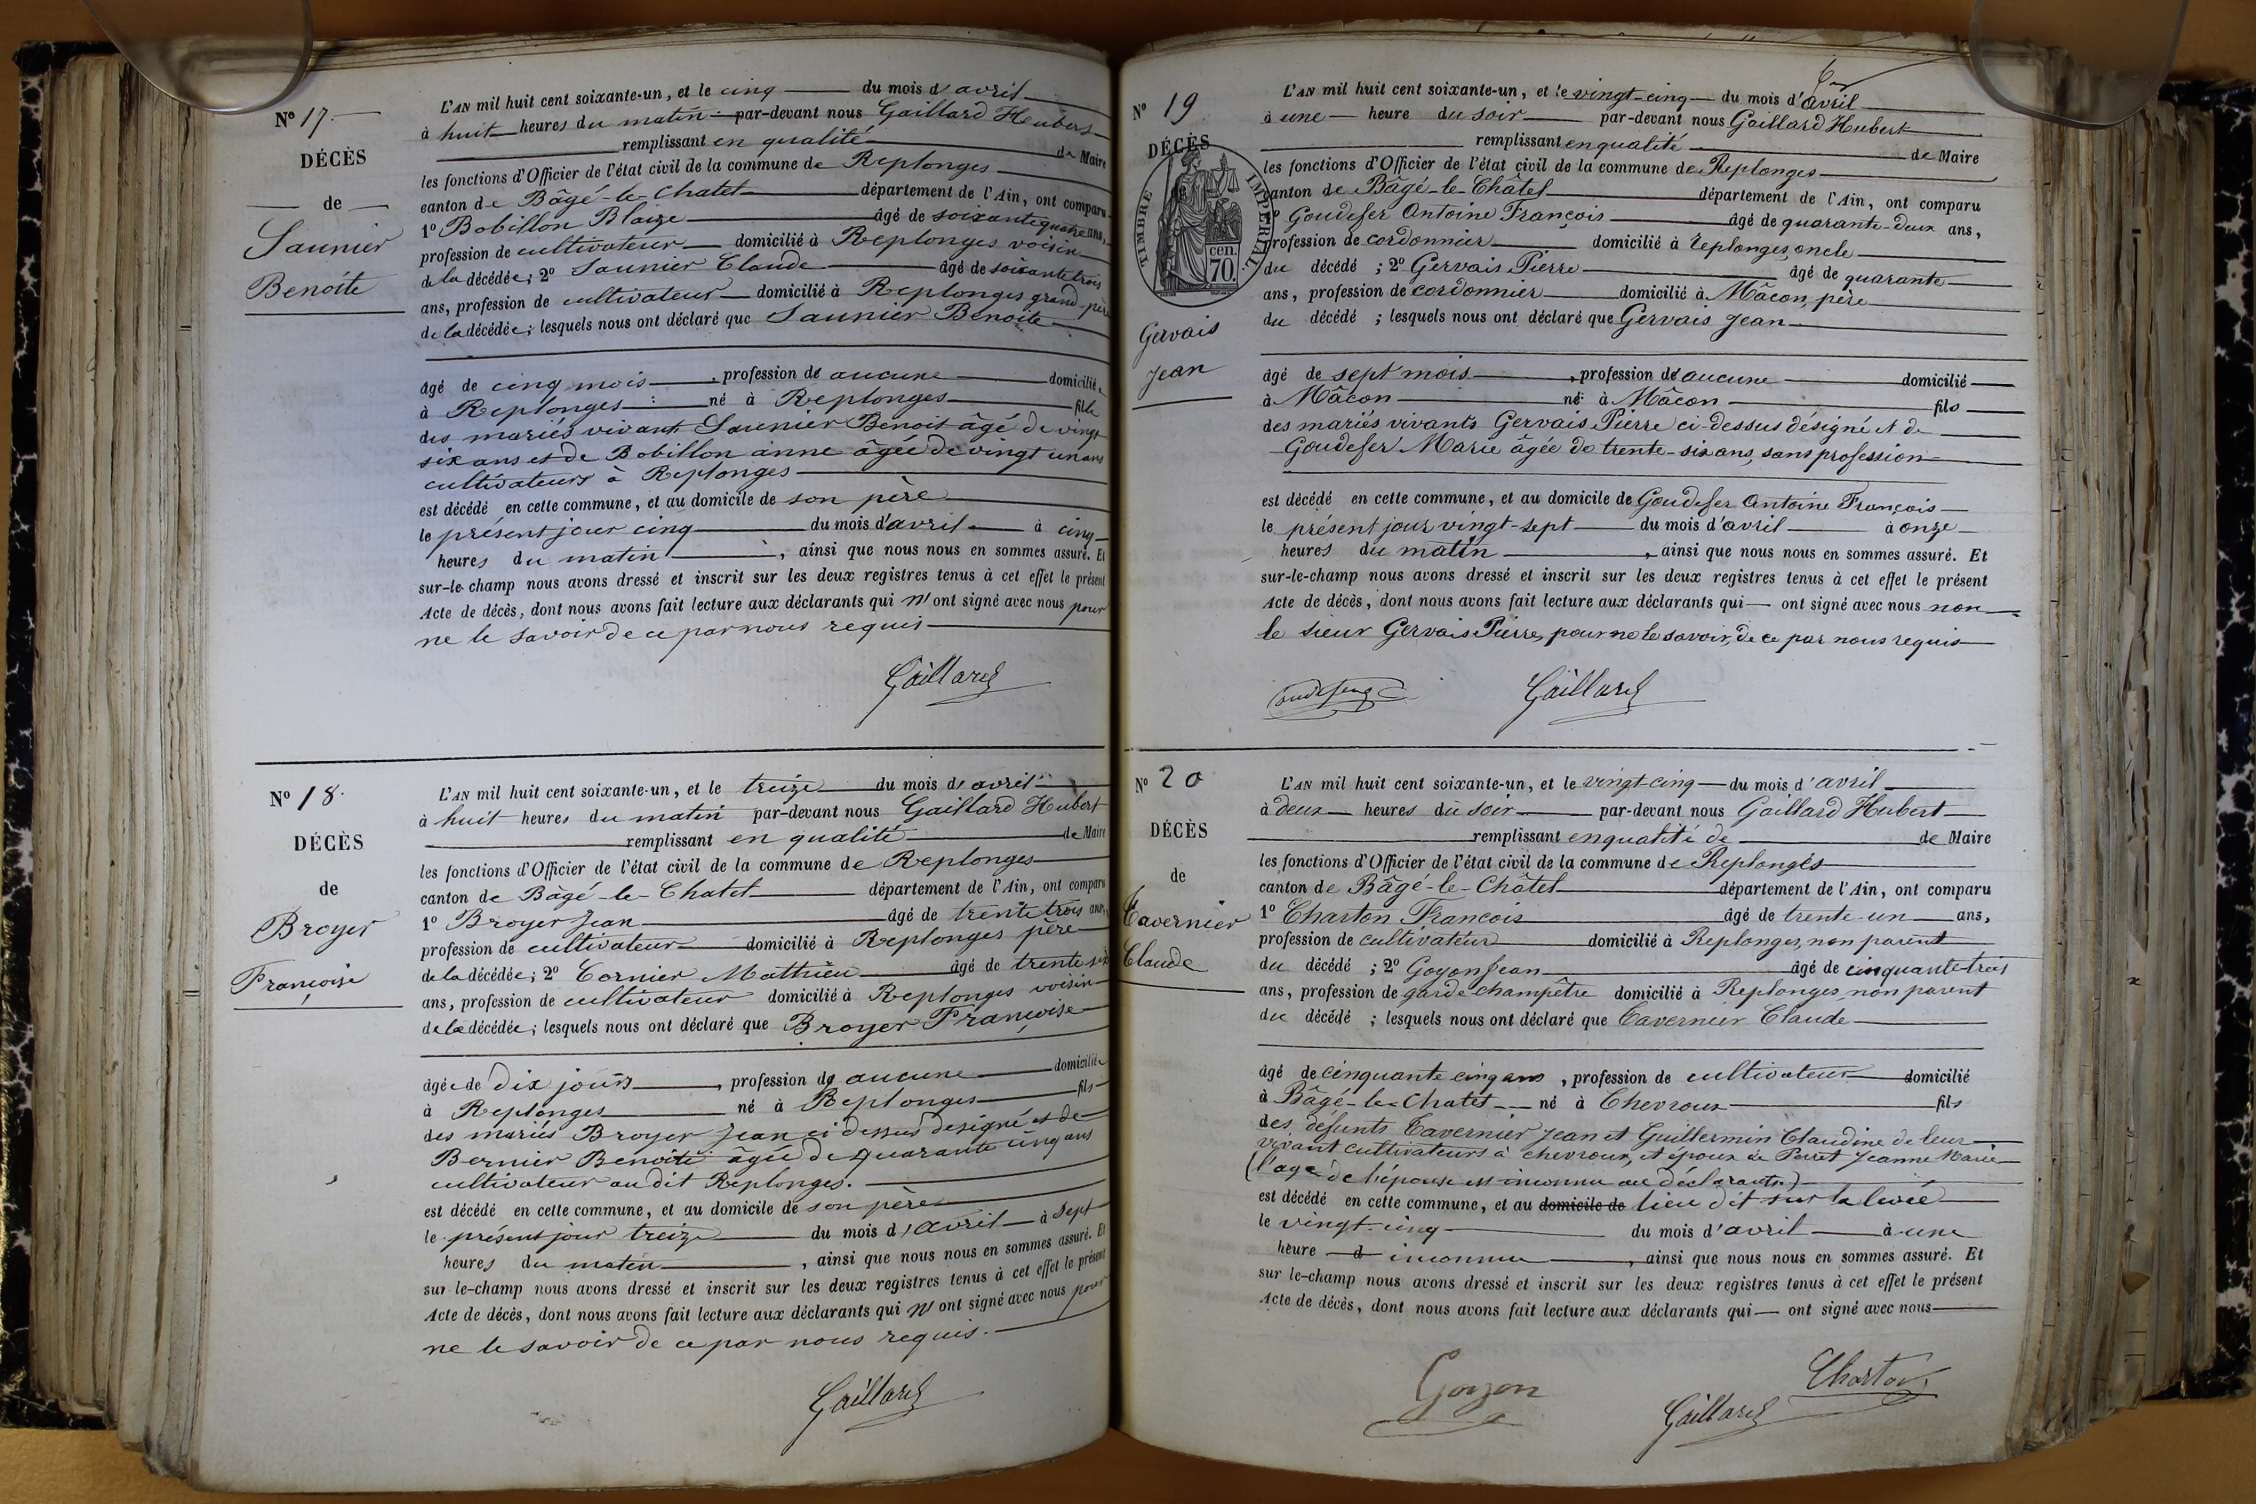 N° 17
DÉCÈS
de
Saunier
Benoite
L'AN mil huit cent soixante-un, et le cinq du mois d'avril
à huit heures du matin par-devant nous Gaillard Hubert
remplissant en qualité de Maire
les fonctions d'Officier de l'état civil de la commune de Replonges
canton de Bâgé-le-Chatel département de l'Ain, ont comparu
1° Bobillon Blaize âgé de soixante quatre ans,
profession de cultivateur domicilié à Replonges voisin
de la décédée; 2° Saunier Claude âgé de soixante trois
ans, profession de cultivateur domicilié à Replonges grand-père
de la décédée; lesquels nous ont déclaré que Saunier Benoite
âgé de cinq mois, profession de aucune domicilié
à Replonges né à Replonges fille
des mariés vivant Saunier Benoit âgé de vingt
six ans et de Bobillon anne âgée de vingt un ans
cultivateurs à Replonges
est décédé en cette commune, et au domicile de son père
le présent jour cinq du mois d'avril à cinq
heures du matin, ainsi que nous nous en sommes assuré. Et
sur-le-champ nous avons dressé et inscrit sur les deux registres tenus à cet effet le présent
Acte de décès, dont nous avons fait lecture aux déclarants qui n'ont signé avec nous pour
ne le savoir de ce par nous requis
Gaillard
N° 18.
DÉCÈS
de
Broyer
Françoise
L'AN mil huit cent soixante-un, et le treize du mois d'avril
à huit heures du matin par-devant nous Gaillard Hubert
remplissant en qualité de Maire
les fonctions d'Officier de l'état civil de la commune de Replonges
canton de Bâgé-le-Chatel département de l'Ain, ont comparu
1° Broyer Jean âgé de trente trois ans,
profession de cultivateur domicilié à Replonges père
de la décédée; 2° Cornier Mathieu âgé de trente six
ans, profession de cultivateur domicilié à Replonges voisin
de la décédée; lesquels nous ont déclaré que Broyer Françoise
âgée de dix jours, profession de aucune domicilié
à Replonges né à Replonges fils
des mariés Broyer Jean ci dessus désigné et de
Bernier Benoite âgée de quarante cinq ans
cultivateur au dit Replonges.
est décédé en cette commune, et au domicile de son père
le présent jour treize du mois d'avril à sept
heures du matin, ainsi que nous nous en sommes assuré. Et
sur-le-champ nous avons dressé et inscrit sur les deux registres tenus à cet effet le présent
Acte de décès, dont nous avons fait lecture aux déclarants qui n'ont signé avec nous pour
ne le savoir de ce par nous requis.
Gaillard
N° 19
DÉCÈS
TIMBRE IMPÉRIAL
70 cen.
Gervais
Jean
L'AN mil huit cent soixante-un, et le vingt-cinq du mois d'avril
à une heure du soir par-devant nous Gaillard Hubert
remplissant en qualité de Maire
les fonctions d'Officier de l'état civil de la commune de Replonges
canton de Bâgé-le-Châtel département de l'Ain, ont comparu
1° Goudefer Antoine François âgé de quarante-deux ans,
profession de cordonnier domicilié à Replonges, oncle
du décédé; 2° Gervais Pierre âgé de quarante
ans, profession de cordonnier domicilié à Mâcon, père
du décédé; lesquels nous ont déclaré que Gervais Jean
âgé de sept mois, profession de aucune domicilié
à Mâcon né à Mâcon fils
des mariés vivants Gervais Pierre ci-dessus désigné et de
Goudefer Marie âgée de trente-six ans, sans profession
est décédé en cette commune, et au domicile de Goudefer Antoine François
le présent jour vingt-sept du mois d'avril à onze
heures du matin, ainsi que nous nous en sommes assuré. Et
sur-le-champ nous avons dressé et inscrit sur les deux registres tenus à cet effet le présent
Acte de décès, dont nous avons fait lecture aux déclarants qui ont signé avec nous non
le sieur Gervais Pierre, pour ne le savoir, de ce par nous requis
Gaillard
N° 20
DÉCÈS
de
Tavernier
Claude
L'AN mil huit cent soixante-un, et le vingt-cinq du mois d'avril
à deux heures du soir par-devant nous Gaillard Hubert
remplissant en qualité de de Maire
les fonctions d'Officier de l'état civil de la commune de Replonges
canton de Bâgé-le-Châtel département de l'Ain, ont comparu
1° Charton François âgé de trente-un ans,
profession de cultivateur domicilié à Replonges, non parent
du décédé; 2° Goyon Jean âgé de cinquante-trois
ans, profession de garde-champêtre domicilié à Replonges, non parent
du décédé; lesquels nous ont déclaré que Tavernier Claude
âgé de cinquante cinq ans, profession de cultivateur domicilié
à Bâgé-le-Chatel né à Chevroux fils
des défunts Tavernier Jean et Guillermin Claudine de leur
vivant cultivateurs à chevroux, et époux de Perret Jeanne Marie
(l'age de l'épouse est inconnu aux déclarants)
est décédé en cette commune, et au domicile de lieu dit sur la levée
le vingt-cinq du mois d'avril à une
heure d inconnue, ainsi que nous nous en sommes assuré. Et
sur le-champ nous avons dressé et inscrit sur les deux registres tenus à cet effet le présent
Acte de décès, dont nous avons fait lecture aux déclarants qui ont signé avec nous
Goyon
Charton
Gaillard